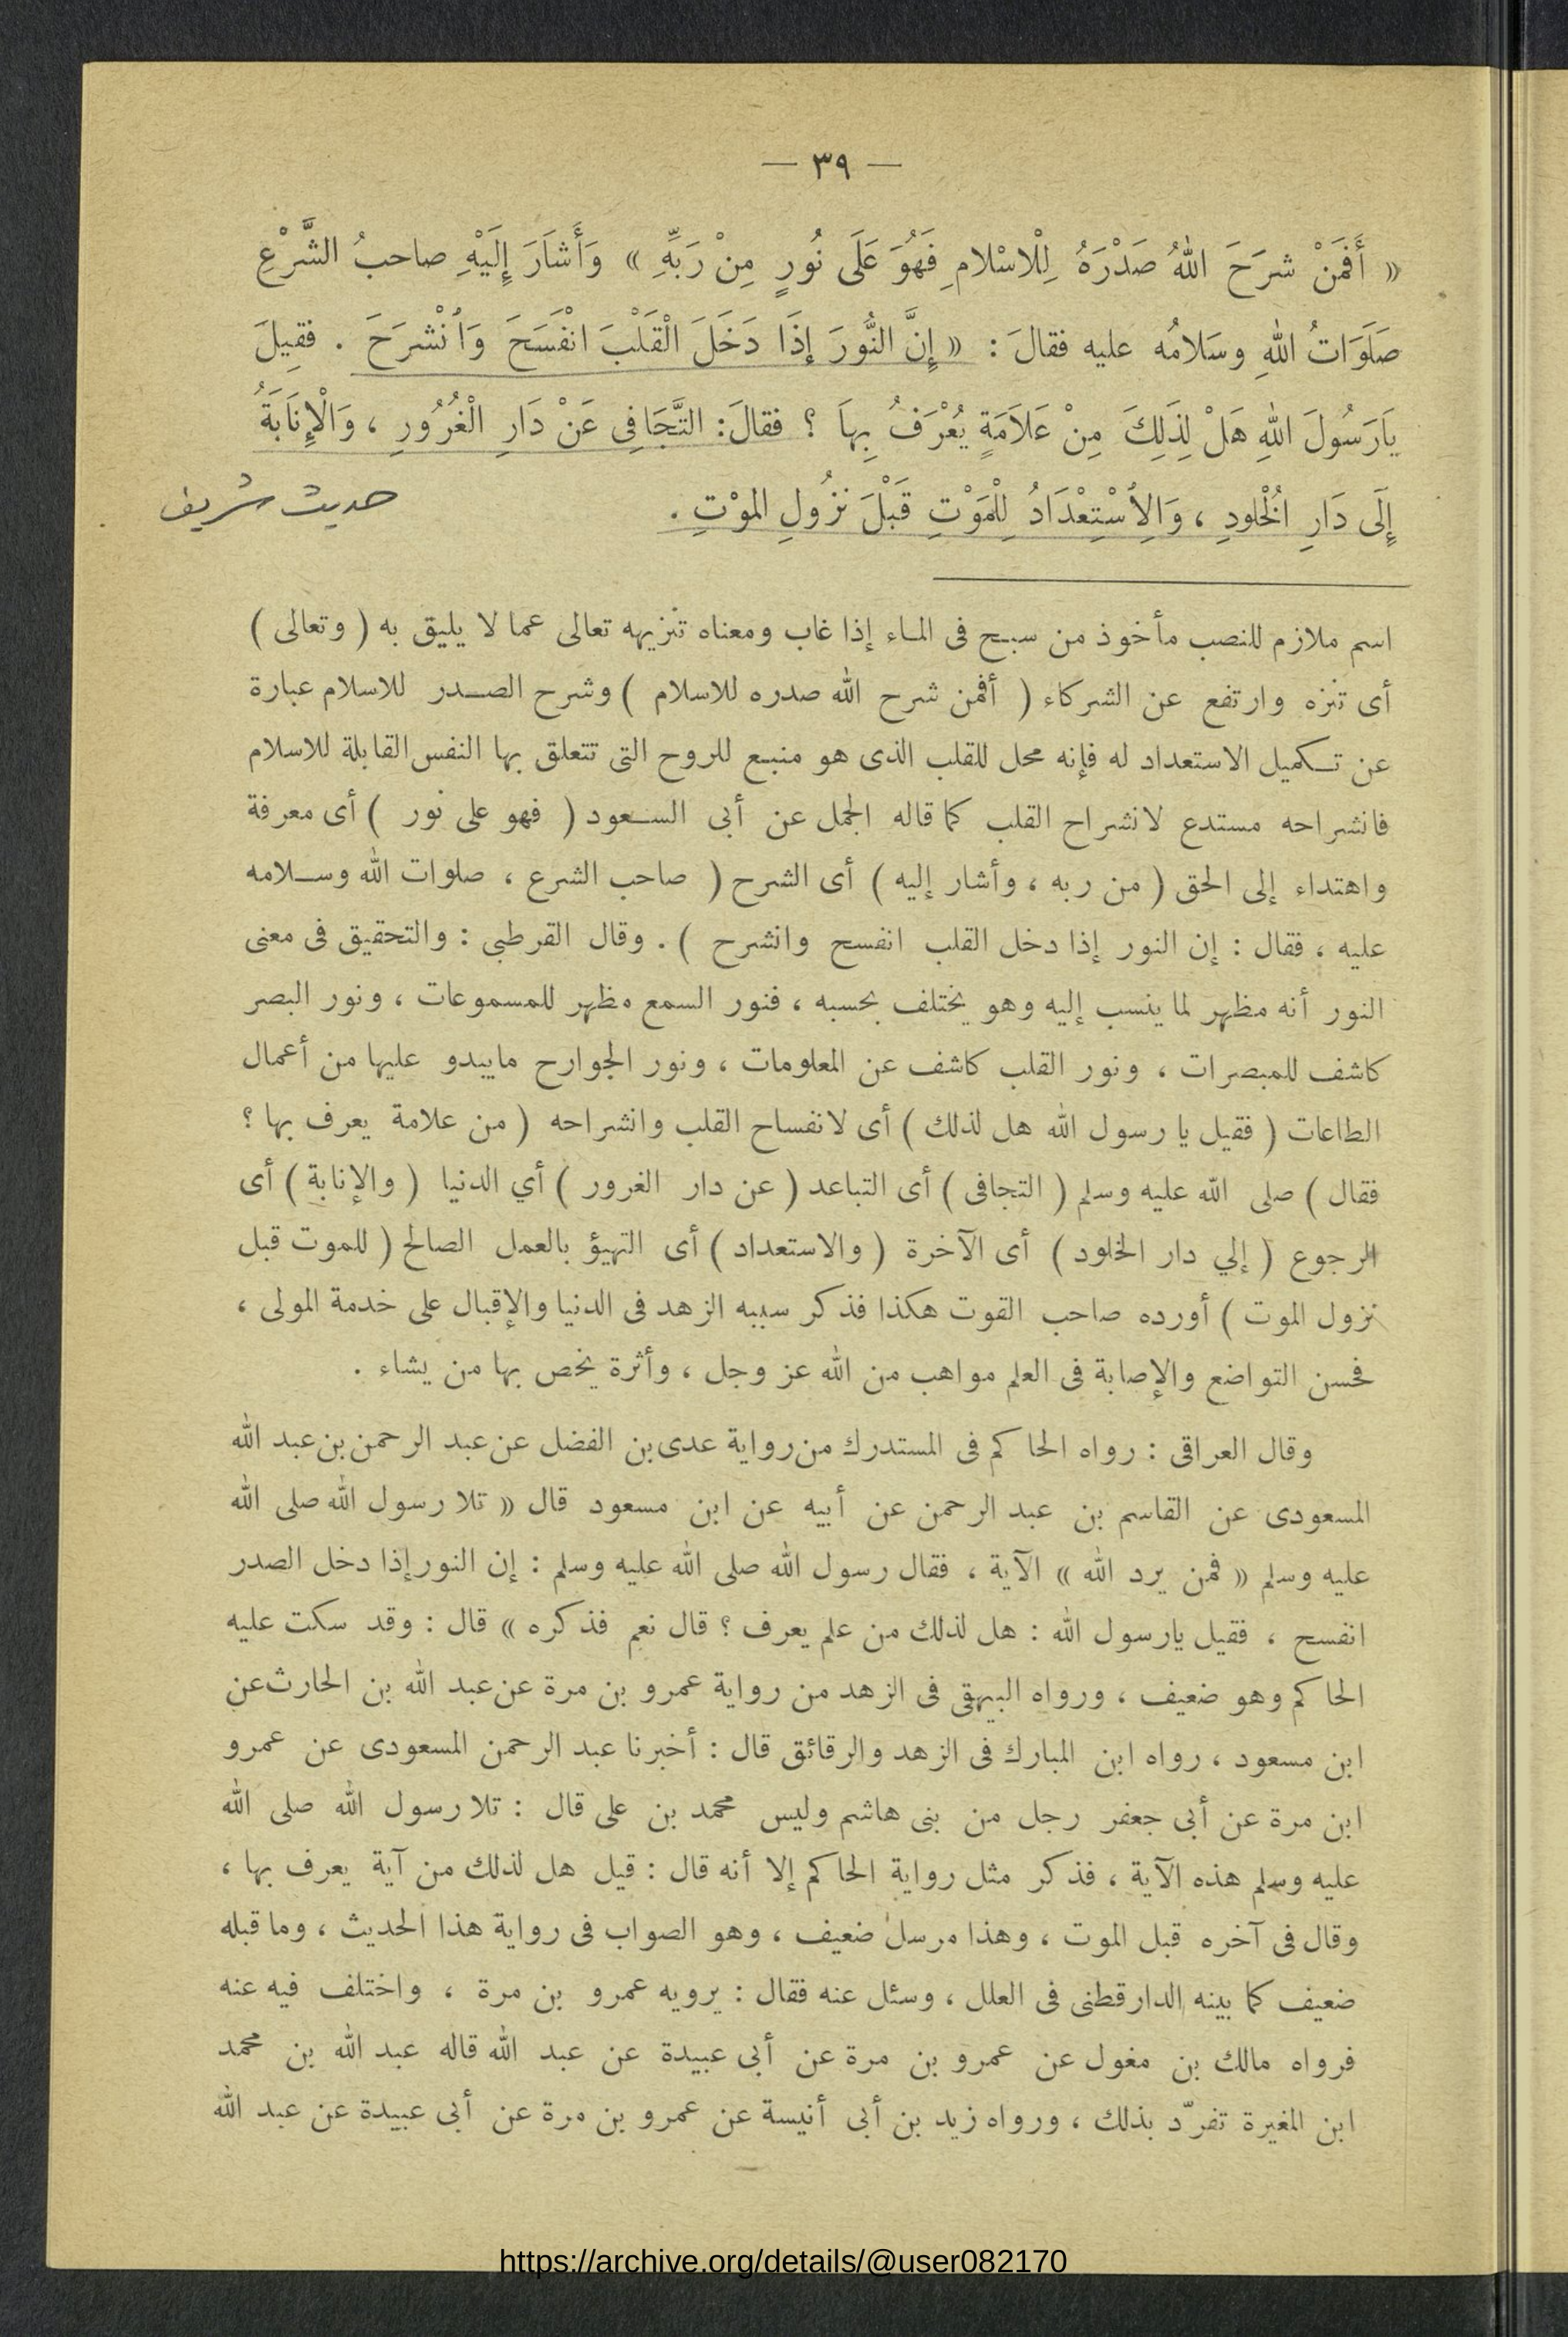 — ٣٩ —
« أَفَمَنْ شرَحَ اللهُ صَدْرَهُ لِلْاسْلامِ فَهُوَ عَلَى نُورٍ مِنْ رَبِّهِ » وَأَشاَرَ إِلَيْهِ صاحبُ الشَّرْعِ
صَلَوَاتُ اللهِ وسَلامُه عليه فقالَ : « إِنَّ النُّورَ إِذَا دَخَلَ الْقَلْبَ انْفَسَحَ وَاُنْشرَحَ . فقِيلَ
يَارَسُولَ اللهِ هَلْ لِذَلِكَ مِنْ عَلاَمَةٍ يُعْرَفُ بِهاَ ؟ فقالَ: التَّجَافِى عَنْ دَارِ الْغُرُورِ ، وَالْإِنَابَةُ
إِلَى دَارِ اُلْخُلودِ ، وَالِاُسْتِعْدَادُ لِلْمَوْتِ قَبْلَ نزُولِ الموْتِ .
حديث شريف
اسم ملازم للنصب مأخوذ من سبح فى الماء إذا غاب ومعناه تنزيهه تعالى عما لا يليق به ( وتعالى )
أى تنزه وارتفع عن الشركاء ( أفمن شرح الله صدره للاسلام ) وشرح الصدر للاسلام عبارة
عن تكميل الاستعداد له فإنه محل للقلب الذى هو منبع للروح التى تتعلق بها النفس القابلة للاسلام
فانشراحه مستدع لانشراح القلب كما قاله الجمل عن أبى السعود ( فهو على نور ) أى معرفة
واهتداء إلى الحق ( من ربه ، وأشار إليه ) أى الشرح ( صاحب الشرع ، صلوات الله وسلامه
عليه ، فقال : إن النور إذا دخل القلب انفسح وانشرح ) . وقال القرطبى : والتحقيق فى معنى
النور أنه مظهر لما ينسب إليه وهو يختلف بحسبه ، فنور السمع مظهر للمسموعات ، ونور البصر
كاشف للمبصرات ، ونور القلب كاشف عن المعلومات ، ونور الجوارح مايبدو عليها من أعمال
الطاعات ( فقيل يا رسول الله هل لذلك ) أى لانفساح القلب وانشراحه ( من علامة يعرف بها ؟
فقال ) صلى الله عليه وسلم ( التجافى ) أى التباعد ( عن دار الغرور ) أي الدنيا ( والإنابة ) أى
الرجوع ( إلي دار الخلود ) أى الآخرة ( والاستعداد ) أى التهيؤ بالعمل الصالح ( للموت قبل
نزول الموت ) أورده صاحب القوت هكذا فذكر سببه الزهد فى الدنيا والإقبال على خدمة المولى ،
فحسن التواضع والإصابة فى العلم مواهب من الله عز وجل ، وأثرة يخص بها من يشاء .
وقال العراقى : رواه الحاكم فى المستدرك من رواية عدى بن الفضل عن عبد الرحمن بن عبد الله
المسعودى عن القاسم بن عبد الرحمن عن أبيه عن ابن مسعود قال « تلا رسول الله صلى الله
عليه وسلم « فمن يرد الله » الآية ، فقال رسول الله صلى الله عليه وسلم : إن النور إذا دخل الصدر
انفسح ، فقيل يارسول الله : هل لذلك من علم يعرف ؟ قال نعم فذكره » قال : وقد سكت عليه
الحاكم وهو ضعيف ، ورواه البيهقى فى الزهد من رواية عمرو بن مرة عن عبد الله بن الحارث عن
ابن مسعود ، رواه ابن المبارك فى الزهد والرقائق قال : أخبرنا عبد الرحمن المسعودى عن عمرو
ابن مرة عن أبى جعفر رجل من بنى هاشم وليس محمد بن على قال : تلا رسول الله صلى الله
عليه وسلم هذه الآية ، فذكر مثل رواية الحاكم إلا أنه قال : قيل هل لذلك من آية يعرف بها ،
وقال فى آخره قبل الموت ، وهذا مرسل ضعيف ، وهو الصواب فى رواية هذا الحديث ، وما قبله
ضعيف كما بينه الدارقطنى فى العلل ، وسئل عنه فقال : يرويه عمرو بن مرة ، واختلف فيه عنه
فرواه مالك بن مغول عن عمرو بن مرة عن أبى عبيدة عن عبد الله قاله عبد الله بن محمد
ابن المغيرة تفرّد بذلك ، ورواه زيد بن أبى أنيسة عن عمرو بن مرة عن أبى عبيدة عن عبد الله
https://archive.org/details/@user082170